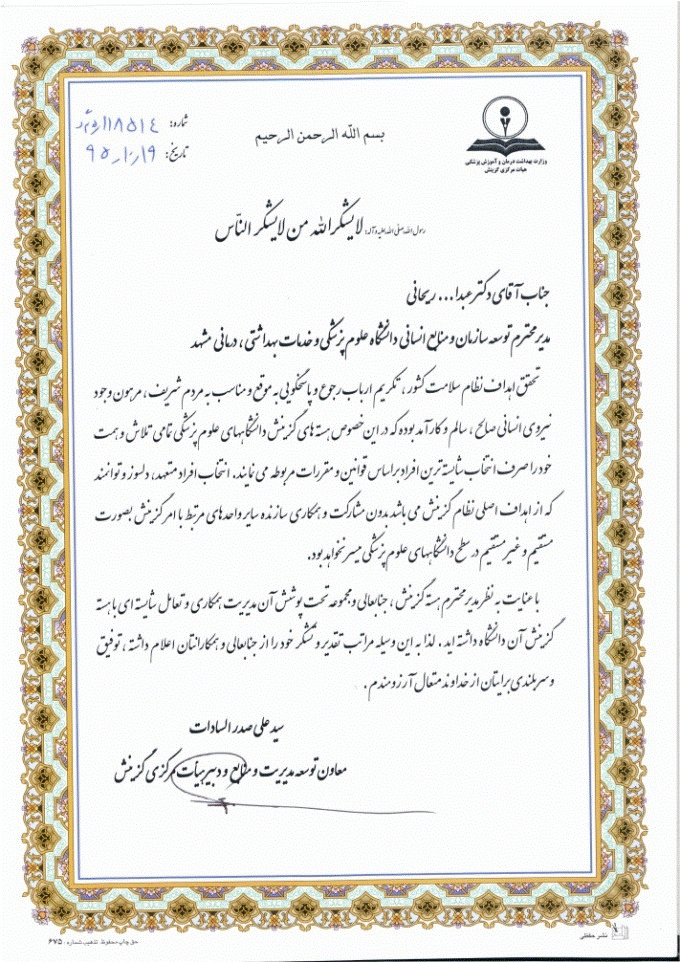 بسم الله الرحمن الرحیم
وزارت بهداشت درمان و آموزش پزشکی
هیات مرکزی گزینش
شماره: ۱۱۸۵۱۴
تاریخ: ۹۵٫۱۰٫۱۹
رسول الله صلی الله علیه و آله: لا یشکر الله من لا یشکر النّاس
جناب آقای دکتر عبدا... ریحانی
مدیر محترم توسعه سازمان و منابع انسانی دانشگاه علوم پزشکی و خدمات بهداشتی، درمانی مشهد
تحقق اهداف نظام سلامت کشور، تکریم ارباب رجوع و پاسخگویی به موقع و مناسب به مردم شریف، مرهون وجود
نیروی انسانی صالح، سالم و کارآمد بوده که در این خصوص هسته های گزینش دانشگاههای علوم پزشکی تمامی تلاش و همت
خود را صرف انتخاب شایسته ترین افراد بر اساس قوانین و مقررات مربوطه می نمایند. انتخاب افراد متعهد، دلسوز و توانمند
که از اهداف اصلی نظام گزینش می باشد بدون مشارکت و همکاری سازنده سایر واحدهای مرتبط با امر گزینش بصورت
مستقیم و غیر مستقیم در سطح دانشگاههای علوم پزشکی میسر نخواهد بود.
با عنایت به نظر مدیر محترم هسته گزینش، جنابعالی و مجموعه تحت پوشش آن مدیریت همکاری و تعامل شایسته ای با هسته
گزینش آن دانشگاه داشته اید. لذا به این وسیله مراتب تقدیر و تشکر خود را از جنابعالی و همکارانتان اعلام داشته، توفیق
و سربلندی برایتان از خداوند متعال آرزومندم.
سید علی صدر السادات
معاون توسعه مدیریت و منابع و دبیر هیأت مرکزی گزینش
نشر حفظی
حق چاپ محفوظ. تذهیب شماره: ۶۷۵